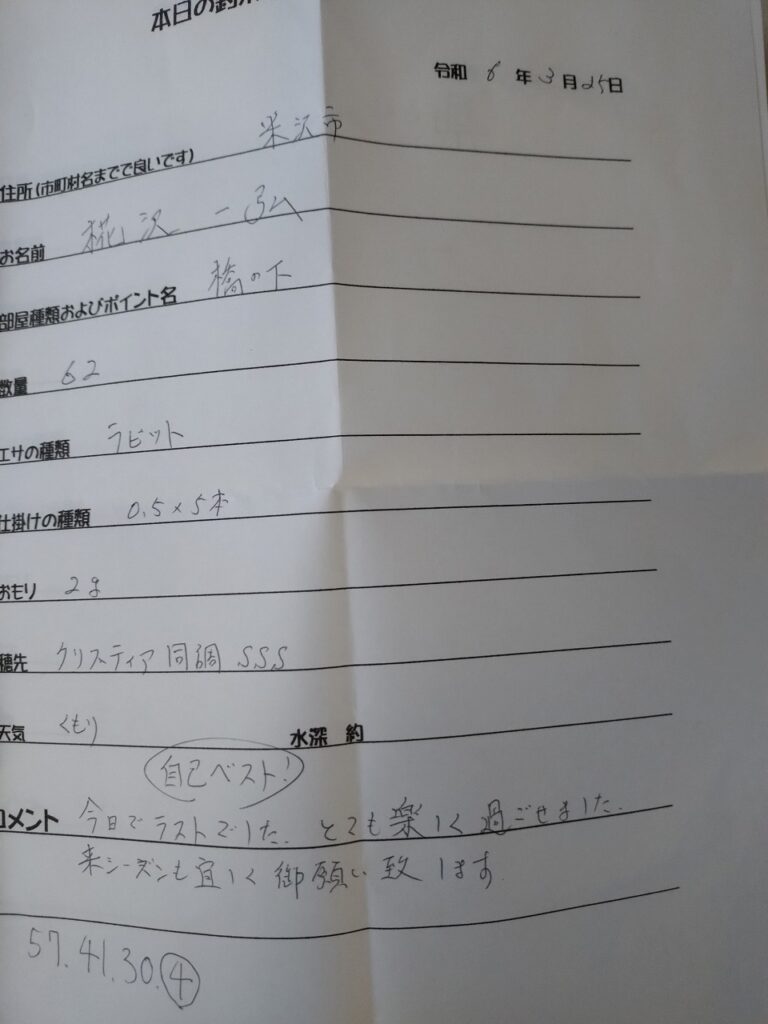 本日の釣果
令和 6 年 3 月 25 日
住所(市町村名までで良いです) 米沢市
お名前 椛沢 一弘
部屋種類およびポイント名 橋の下
数量 62
エサの種類 ラビット
仕掛けの種類 0.5×5本
おもり 2g
穂先 クリスティア 同調 SSS
天気 くもり 水深 約
自己ベスト!
コメント 今日でラストでした。とても楽しく過ごせました。
来シーズンも宜しく御願い致します。
57.41.30.④